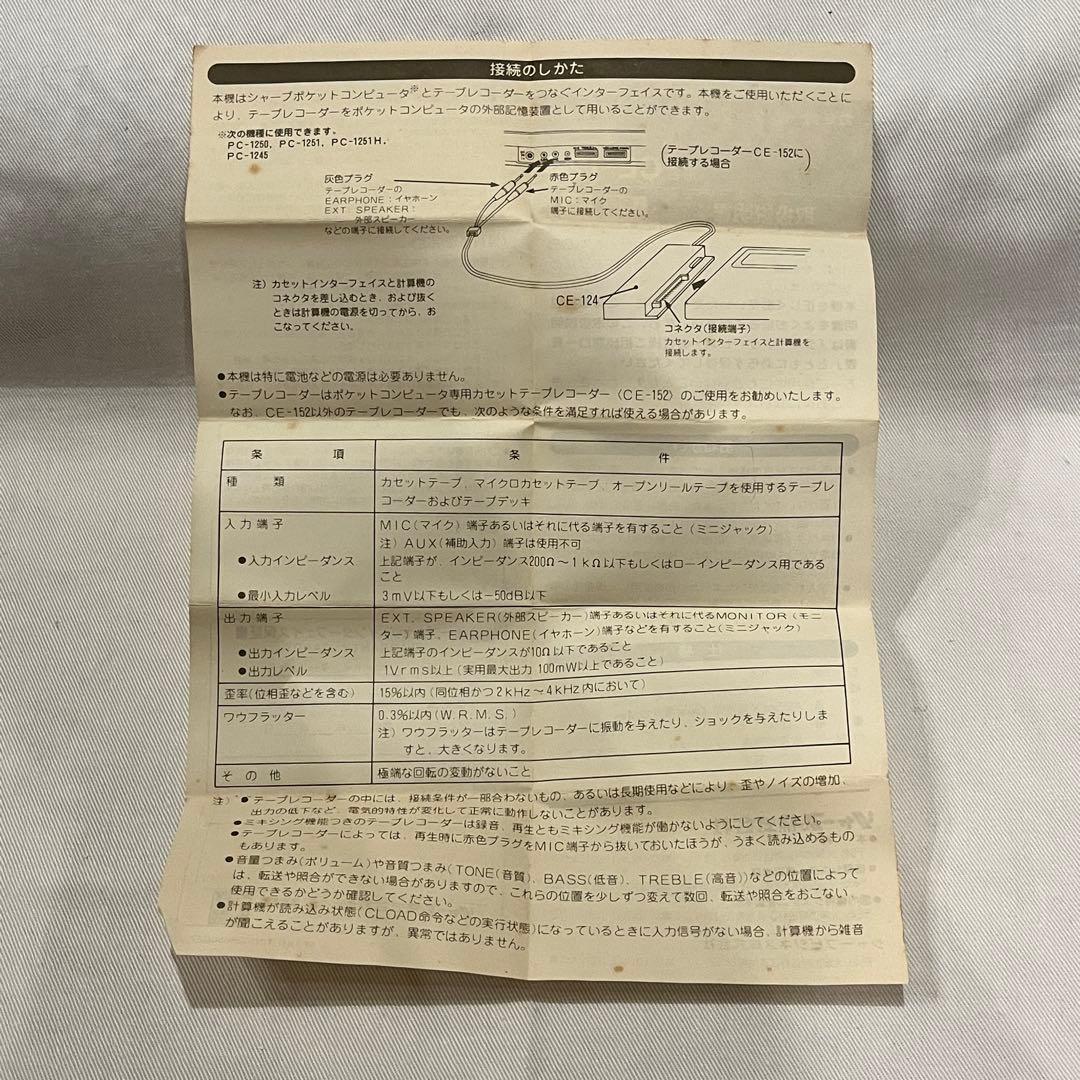 接続のしかた
本機はシャープポケットコンピュータ※とテープレコーダーをつなぐインターフェイスです。本機をご使用いただくことに
より、テープレコーダーをポケットコンピュータの外部記憶装置として用いることができます。
※次の機種に使用できます。
PC-1250, PC-1251, PC-1251H,
PC-1245
(テープレコーダーCE-152に
接続する場合)
灰色プラグ
テープレコーダーの
EARPHONE：イヤホーン
EXT. SPEAKER：
外部スピーカー
などの端子に接続してください。
赤色プラグ
テープレコーダーの
MIC：マイク
端子に接続してください。
注）カセットインターフェイスと計算機の
コネクタを差し込むとき、および抜く
ときは計算機の電源を切ってから、お
こなってください。
CE-124
コネクタ(接続端子)
カセットインターフェイスと計算機を
接続します。
●本機は特に電池などの電源は必要ありません。
●テープレコーダーはポケットコンピュータ専用カセットテープレコーダー（CE-152）のご使用をお勧めいたします。
なお、CE-152以外のテープレコーダーでも、次のような条件を満足すれば使える場合があります。
条項 条件
種類 カセットテープ、マイクロカセットテープ、オープンリールテープを使用するテープレ
コーダーおよびテープデッキ
入力端子 MIC(マイク）端子あるいはそれに代る端子を有すること（ミニジャック）
注）AUX(補助入力）端子は使用不可
●入力インピーダンス 上記端子が、インピーダンス200Ω～1kΩ以下もしくはローインピーダンス用である
こと
●最小入力レベル 3mV以下もしくは－50dB以下
出力端子 EXT. SPEAKER(外部スピーカー)端子あるいはそれに代るMONITOR（モニ
ター）端子、EARPHONE(イヤホーン)端子などを有すること(ミニジャック)
●出力インピーダンス 上記端子のインピーダンスが10Ω以下であること
●出力レベル 1Vrms以上(実用最大出力 100mW以上であること)
歪率(位相歪などを含む) 15%以内(同位相かつ2kHz～4kHz内において)
ワウフラッター 0.3%以内(W.R.M.S.)
注）ワウフラッターはテープレコーダーに振動を与えたり、ショックを与えたりしま
すと、大きくなります。
その他 極端な回転の変動がないこと
注）●テープレコーダーの中には、接続条件が一部合わないもの、あるいは長期使用などにより、歪やノイズの増加、
出力の低下など、電気的特性が変化して正常に動作しないことがあります。
●ミキシング機能つきのテープレコーダーは録音、再生ともミキシング機能が働かないようにしてください。
●テープレコーダーによっては、再生時に赤色プラグをMIC端子から抜いておいたほうが、うまく読み込めるもの
もあります。
●音量つまみ(ボリューム)や音質つまみ(TONE(音質)、BASS(低音)、TREBLE(高音))などの位置によって
は、転送や照合ができない場合がありますので、これらの位置を少しずつ変えて数回、転送や照合をおこない
使用できるかどうか確認してください。
●計算機が読み込み状態(CLOAD命令などの実行状態)になっているときに入力信号がない場合、計算機から雑音
が聞こえることがありますが、異常ではありません。